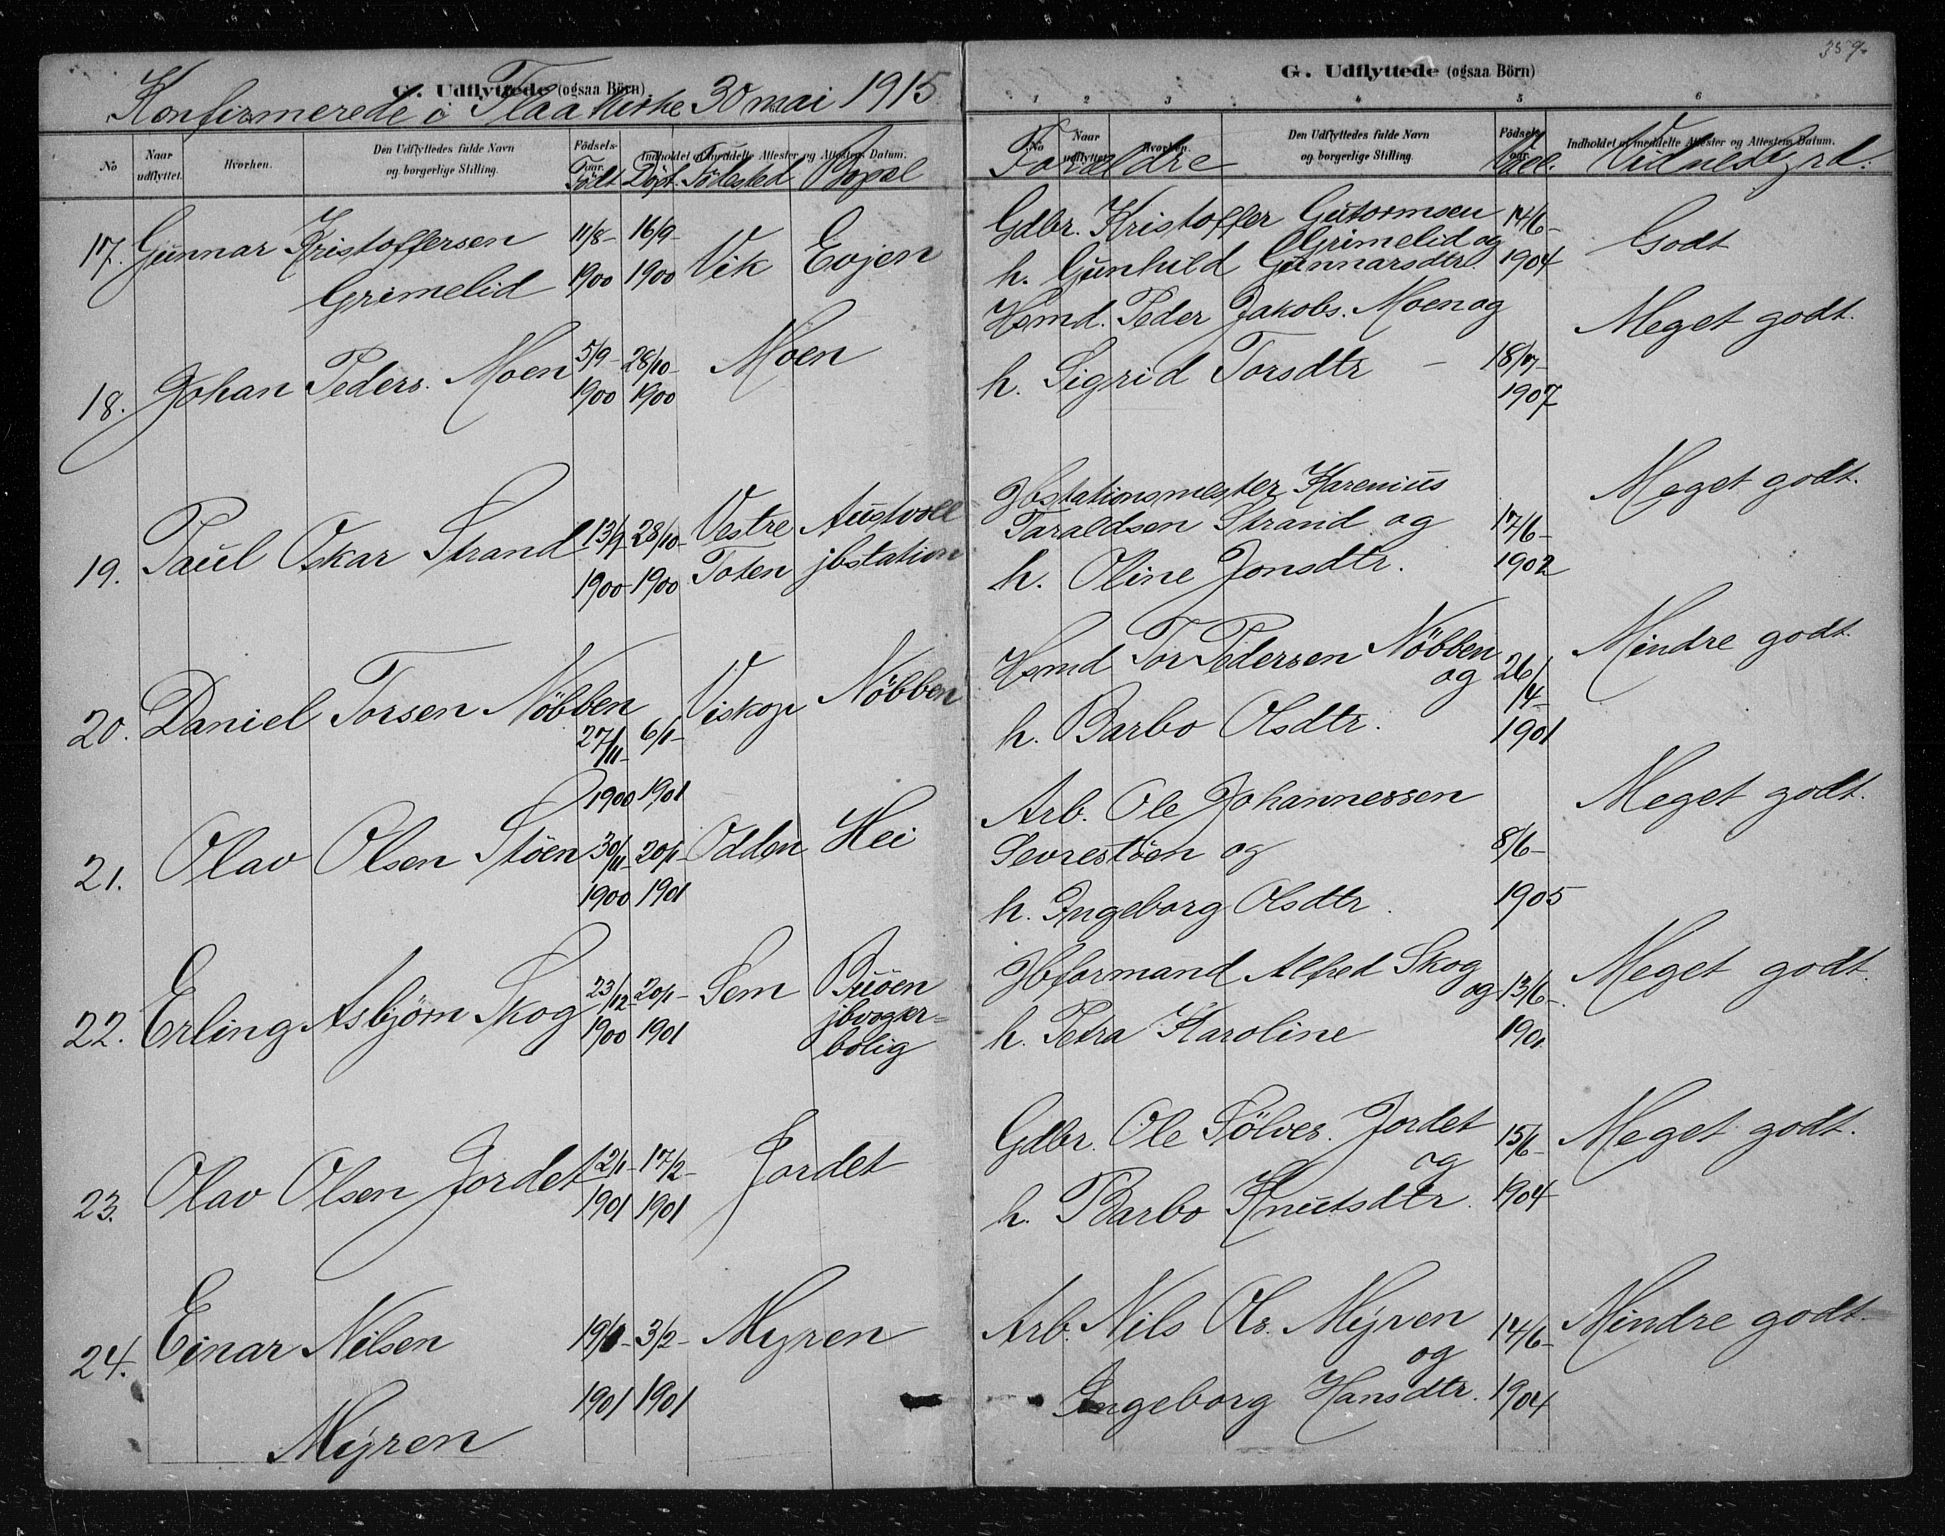 G. Udflyttede (ogsaa Börn)
Konfirmerede i Flaa kirke 30 mai 1915
No
Naar udflyttet.
Hvorhen.
Den Udflyttedes fulde Navn og borgerlige Stilling.
Födsels-
Indholdet af meddelte Attester og Attestens Datum.
Födt Döpt. Födested Bopæl
17. Gunnar Kristoffersen Grimelid 11/8- 1900 16/9- 1900 Vik Evjen
18. Johan Peders. Moen 5/9- 1900 28/10- 1900 Moen
19. Paul Oskar Strand 13/9- 1900 28/10- 1900 Vestre Toten Austvoll jbstation
20. Daniel Torsen Nöbben 27/11- 1900 6/1- 1901 Viskop Nöbben
21. Olav Olsen Stöen 30/11- 1900 20/1- 1901 Odden Hei
22. Erling Asbjörn Skog 23/12- 1900 20/1- 1901 Sem Buöen jbvogter= bolig
23. Olav Olsen Jordet 12/1- 1901 17/2- 1901 Jordet
24. Einar Nilsen Myren 19/1- 1901 3/2- 1901 Myren
359.
G. Udflyttede (ogsaa Börn)
1 2 3 4 5 6
No
Naar udflyttet
Hvorhen.
Den Udflyttedes fulde Navn og borgerlige Stilling.
Födsels-
Indholdet af meddelte Attester og Attestens Datum.
Forældre
Gdbr. Kristoffer Gutormsen
Grimelid og
h. Gunhild Gunnarsdtr. 14/6- 1904 Godt
Hsmd. Peder Jakobs. Moen og
h. Sigrid Torsdtr - 18/7- 1907 Meget godt.
Jbstationsmester Karenius
Taraldsen Strand og
h. Oline Jonsdtr. 17/6- 1902 Meget godt.
Hsmd Tor Pedersen Nöbben
og
h. Barbo Olsdtr. 26/ 14- 1901 Mindre godt.
Arb. Ole Johannessen
Sevrestöen og
h. Ingeborg Olsdtr. 8/6- 1905 Meget godt.
Jbformand Alfred Skog
og
h. Petra Karoline 13/6- 1901 Meget godt.
Gdbr. Ole Sölves. Jordet
og
h. Barbo Knutsdtr. 15/6- 1904 Meget godt.
Arb. Nils Ols. Myren
og
Ingeborg Hansdtr. 14/6- 1904 Mindre godt.